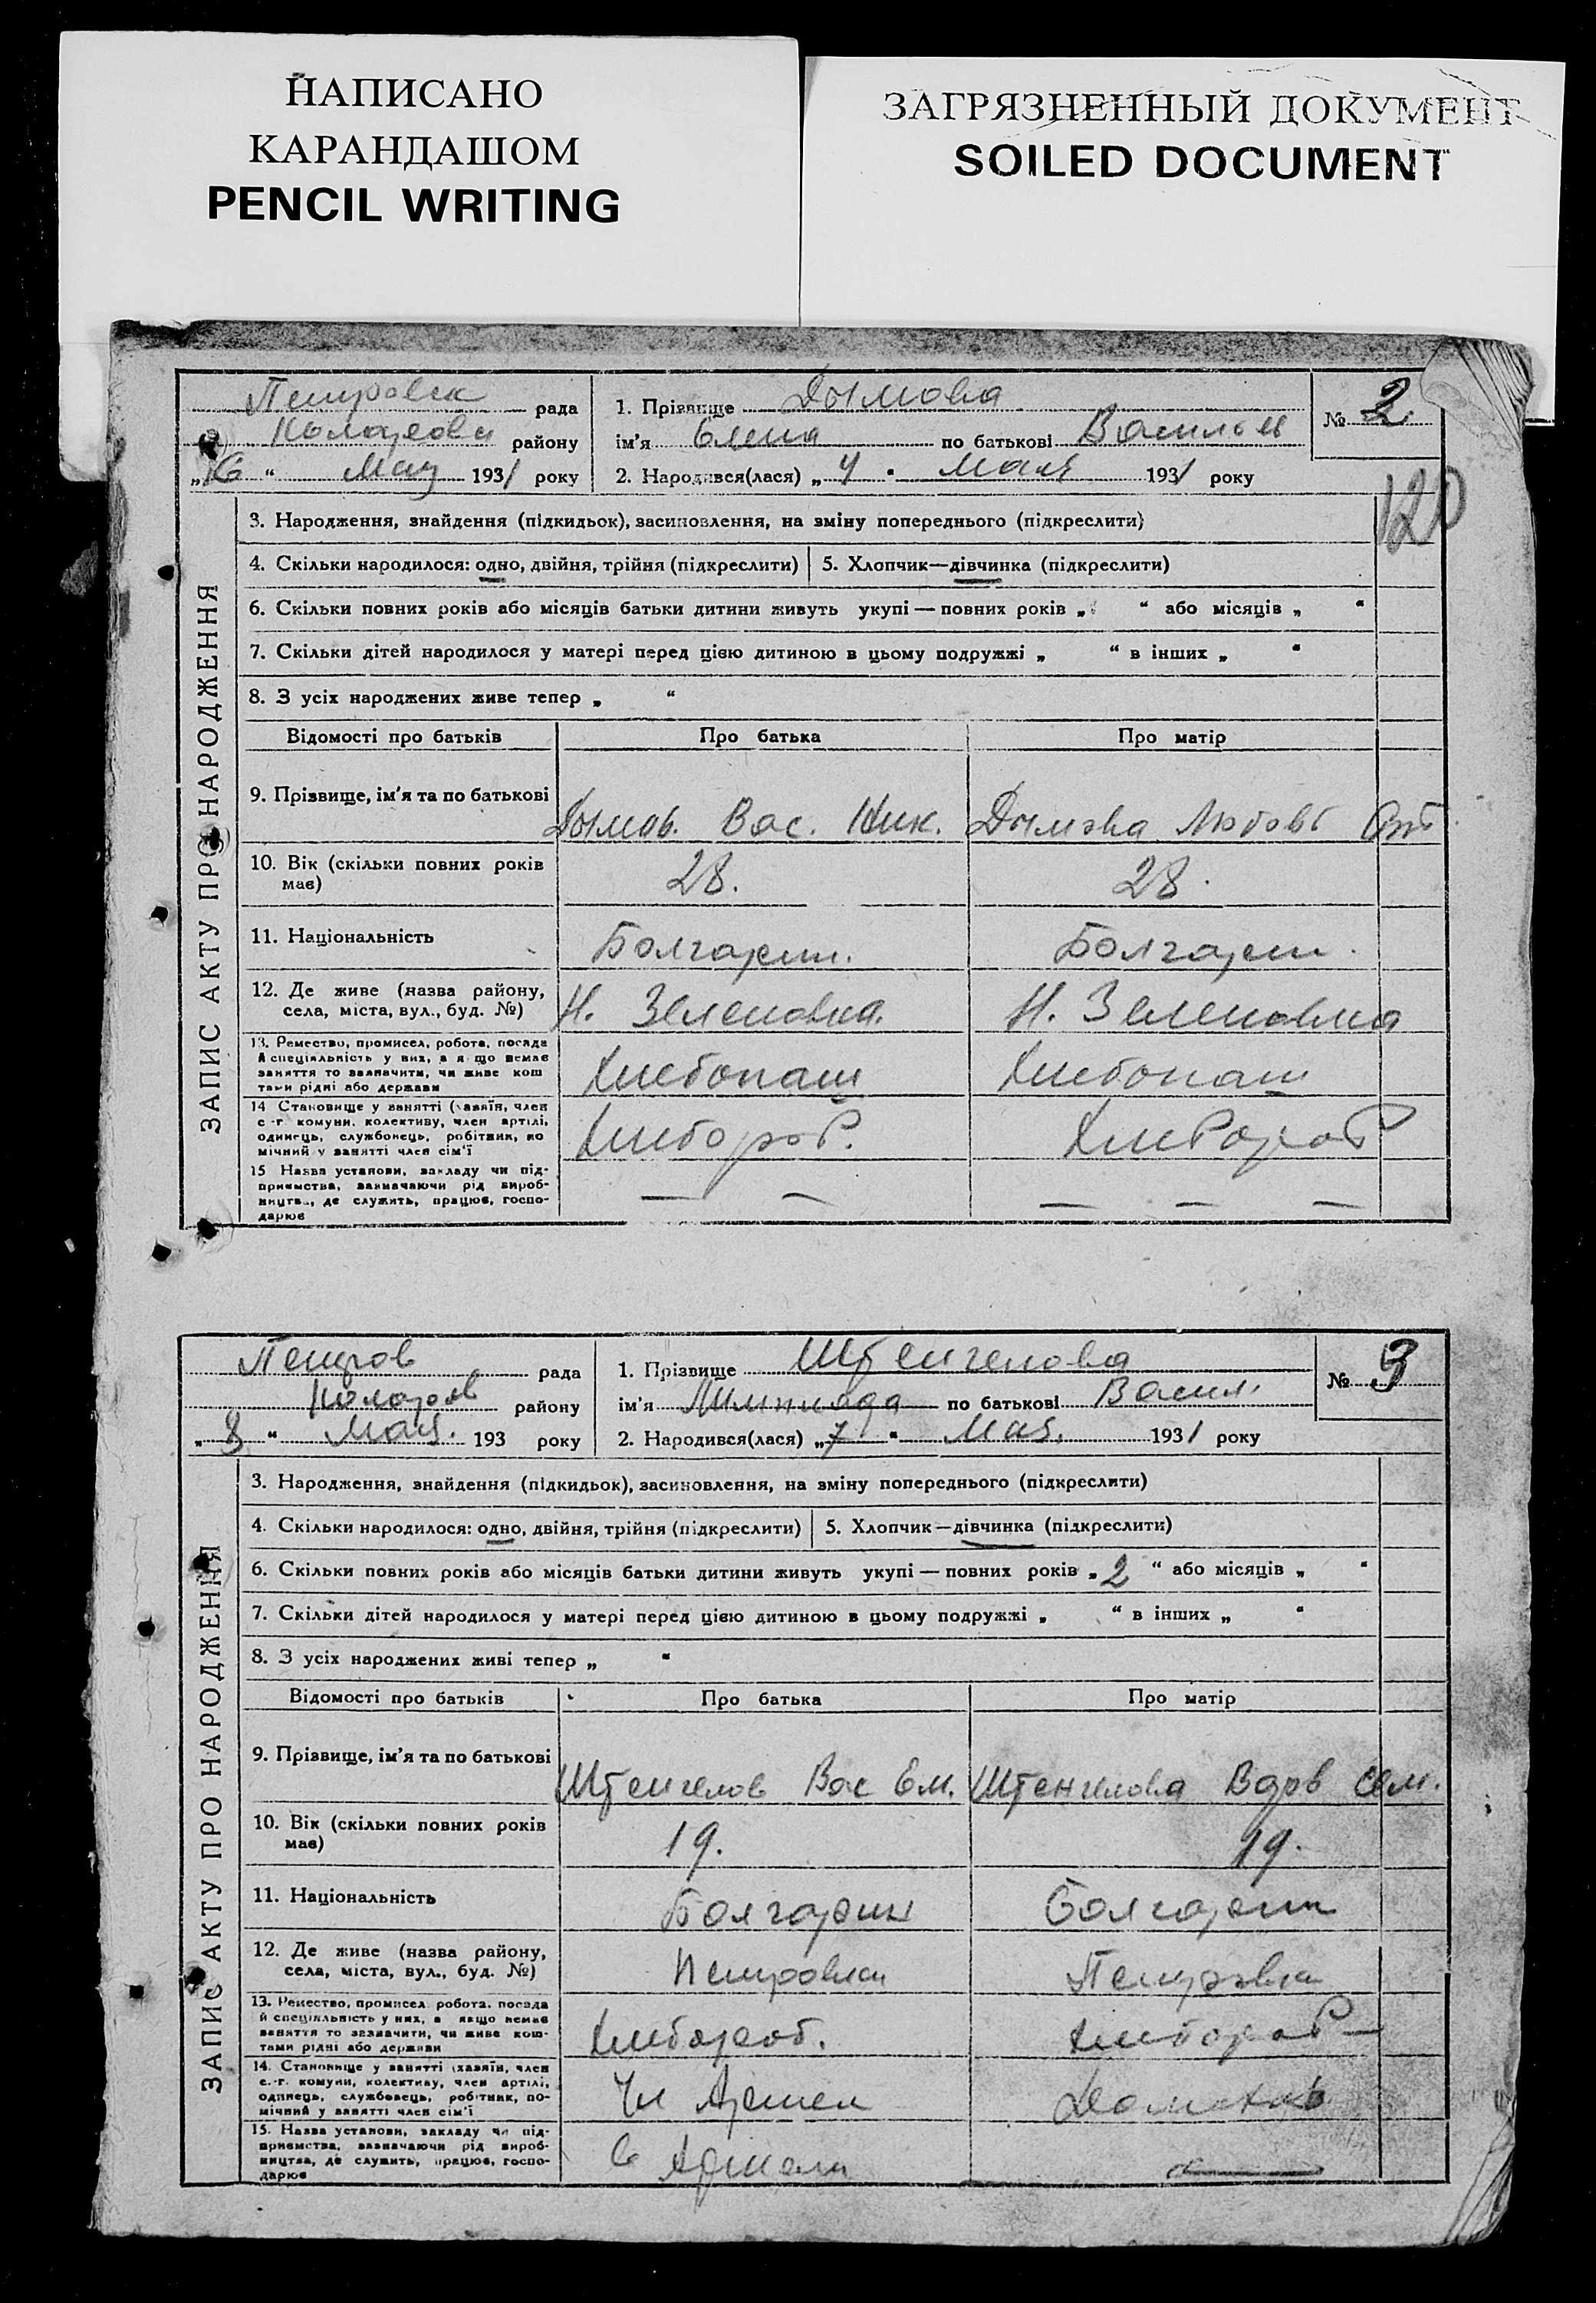 НАПИСАНО
КАРАНДАШОМ
PENCIL WRITING
ЗАГРЯЗНЕННЫЙ ДОКУМЕНТ
SOILED DOCUMENT
Петровск рада
района району
„6“ Мая 1931 року
1. Прізвище Дымова
ім'я Елена по батькові Васильев
2. Народився(лася) „4“ Мая 1931 року
№ 2.
120
ЗАПИС АКТУ ПРО НАРОДЖЕННЯ
3. Народження, знайдення (підкидьок), засиновлення, на зміну попереднього (підкреслити)
4. Скільки народилося: одно, двійня, трійня (підкреслити) 5. Хлопчик—дівчинка (підкреслити)
6. Скільки повних років або місяців батьки дитини живуть укупі — повних років „ “ або місяців „ “
7. Скільки дітей народилося у матері перед цією дитиною в цьому подружжі „ “ в інших „ “
8. З усіх народжених живе тепер „ “
Відомості про батьків Про батька Про матір
9. Прізвище, ім'я та по батькові Дымов. Вас. Ник. Дымова Любовь
10. Вік (скільки повних років має) 28. 28.
11. Національність Болгарин. Болгарин.
12. Де живе (назва району, села, міста, вул., буд. №) Н. Зеленовка. Н. Зеленовка
13. Ремество, промисел, робота, посада й спеціяльність у них, а якщо немає заняття то зазначити, чи живе коштами рідні або держави Хлебопаш Хлебопаш
14 Становище у занятті (хазяїн, член с.-г комуни, колективу, член артілі, одинець, службовець, робітник, помічний у занятті член сім'ї Хлебороб. Хлебороб
15 Назва установи, закладу чи підприємства, зазначаючи рід виробництва, де служить, працює, господарює — — — — —
Петров рада
району
„8“ Мая. 193 року
1. Прізвище Штенгелова
ім'я по батькові Васил.
2. Народився(лася) „7“ Мая. 1931 року
№ 3
ЗАПИС АКТУ ПРО НАРОДЖЕННЯ
3. Народження, знайдення (підкидьок), засиновлення, на зміну попереднього (підкреслити)
4. Скільки народилося: одно, двійня, трійня (підкреслити) 5. Хлопчик—дівчинка (підкреслити)
6. Скільки повних років або місяців батьки дитини живуть укупі — повних років „2“ або місяців „ “
7. Скільки дітей народилося у матері перед цією дитиною в цьому подружжі „ “ в інших „ “
8. З усіх народжених живі тепер „ “
Відомості про батьків Про батька Про матір
9. Прізвище, ім'я та по батькові Штенгелов Вас Ем. Штенгелова Варв Сем.
10. Вік (скільки повних років має) 19. 19.
11. Національність Болгарин Болгарин
12. Де живе (назва району, села, міста, вул., буд. №) Петровка Петровка
13. Ремество, промисел, робота, посада й спеціяльність у них, а якщо немає заняття то зазначити, чи живе коштами рідні або держави Хлебороб. Хлебороб
14. Становище у занятті (хазяїн, член с.-г. комуни, колективу, член артілі, одинець, службовець, робітник, помічний у занятті член сім'ї Чл Артел
15. Назва установи, закладу чи підприємства, зазначаючи рід виробництва, де служить, працює, господарює в Артели